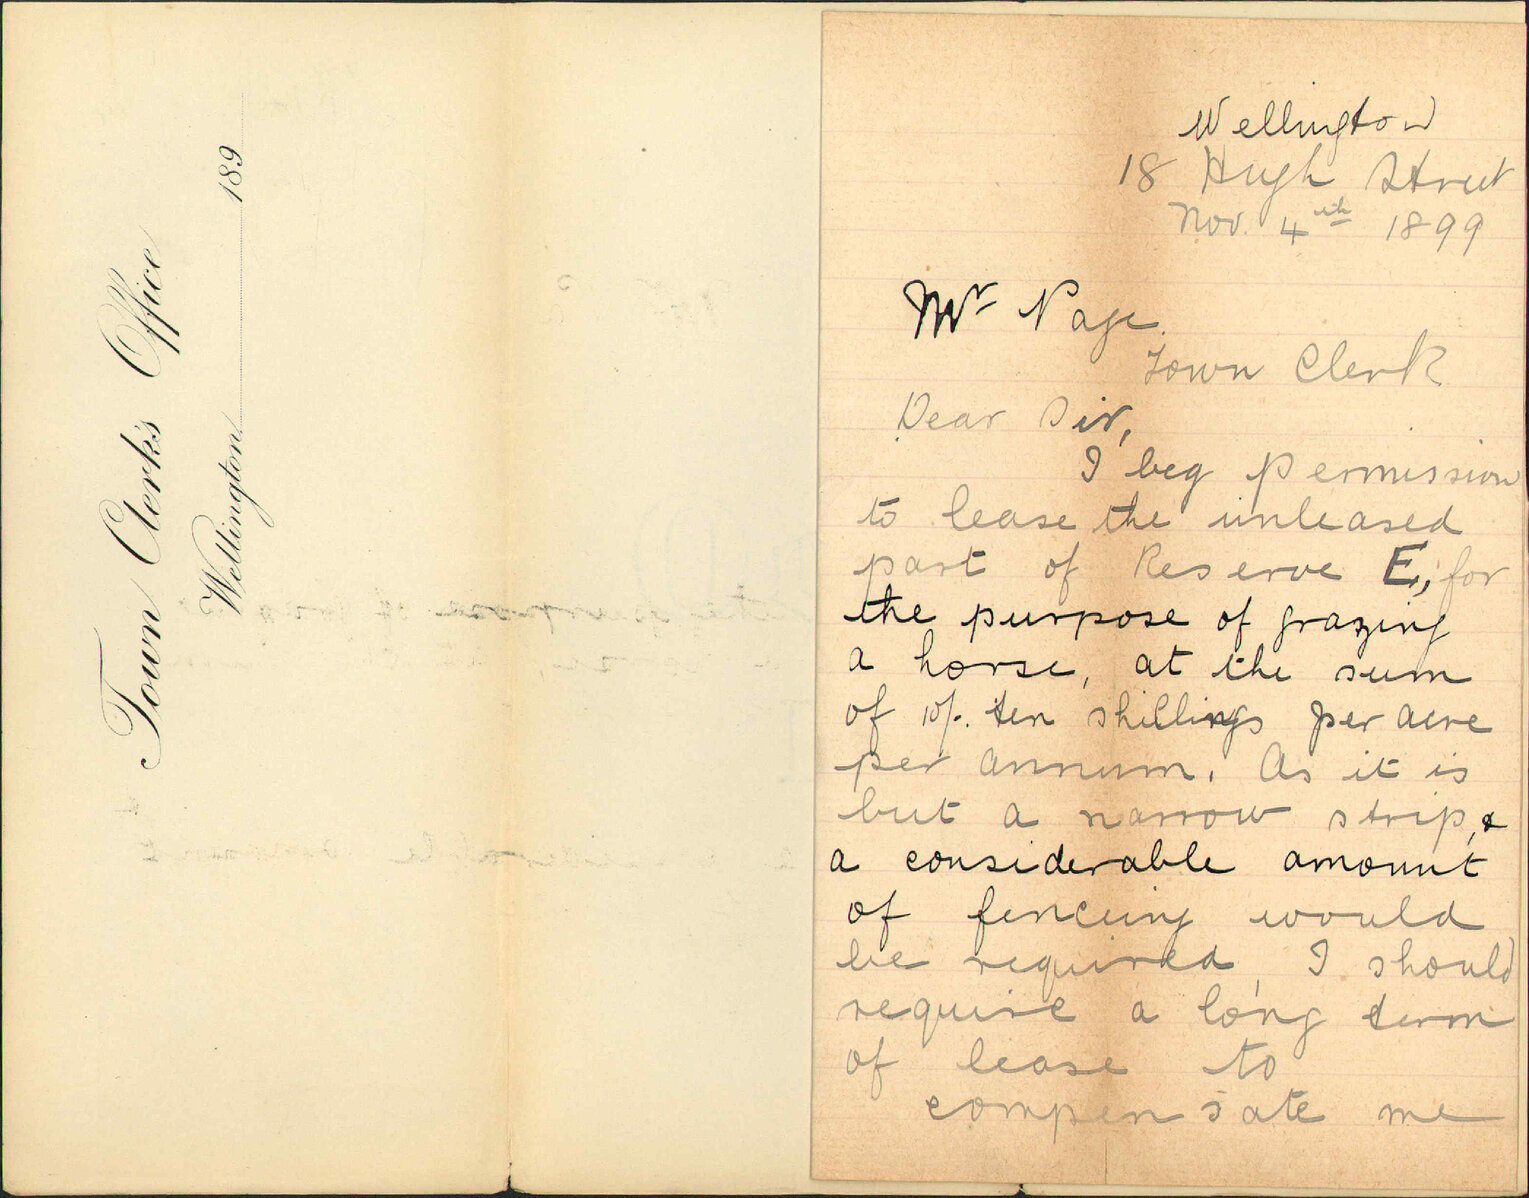 Town Clerk's Office
Wellington 189
Wellington
18 Hugh Street
Nov. 4th 1899
Mr Page.
Town Clerk
Dear Sir,
I beg permission
to lease the unleased
part of Reserve E, for
the purpose of grazing
a horse, at the sum
of 10/-. ten shillings per acre
per annum. As it is
but a narrow strip, &
a considerable amount
of fencing would
be required, I should
require a long term
of lease to
compensate me